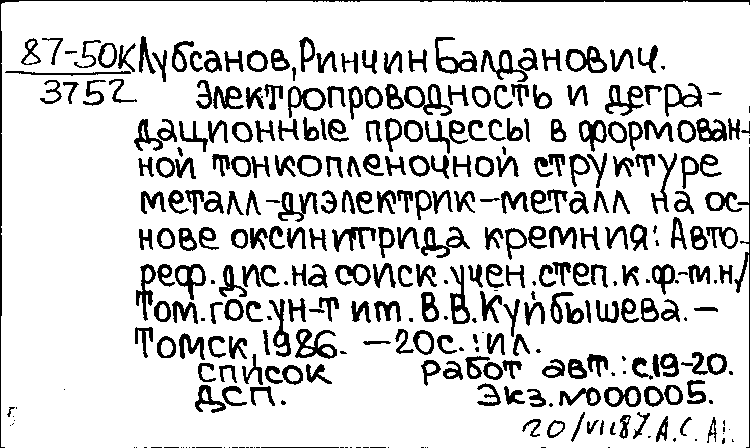 87-50К Лубсанов, Ринчин Балданович.
3752 Электропроводность и дегра-
дационные процессы в формован-
ной тонкопленочной структуре
металл-диэлектрик-металл на ос-
нове оксинитрида кремния: Авто-
реф. дис. на соиск. учен. степ. к.ф.-м.н/
Том. гос. ун-т им. В.В. Куйбышева. –
Томск, 1986. – 20с.: ил.
список работ авт.: с.19-20.
ДСП. Экз. №000005.
20/VII87. А.С.